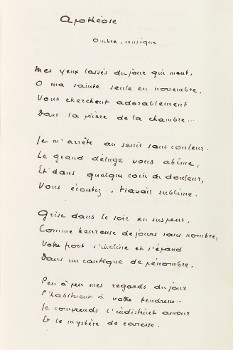 Apothéose
Ombre, musique
Mes yeux lassés du jour qui meurt,
O ma sainte seule en novembre,
Vous cherchent adorablement
Dans la pièce de la chambre...
Je m'arrête au soir sans couleur.
Le grand déluge vous abîme,
Et dans quelque coin de douleur,
Vous écoutez, travail sublime.
Grise dans le soir en suspens,
Comme heureuse de jours sans nombre,
Votre front s'incline et s'épand
Dans un cantique de pénombre.
Peu à peu mes regards du jour
S'habituent à votre tendresse
Je comprends l'indistinct amour
Et le mystère de